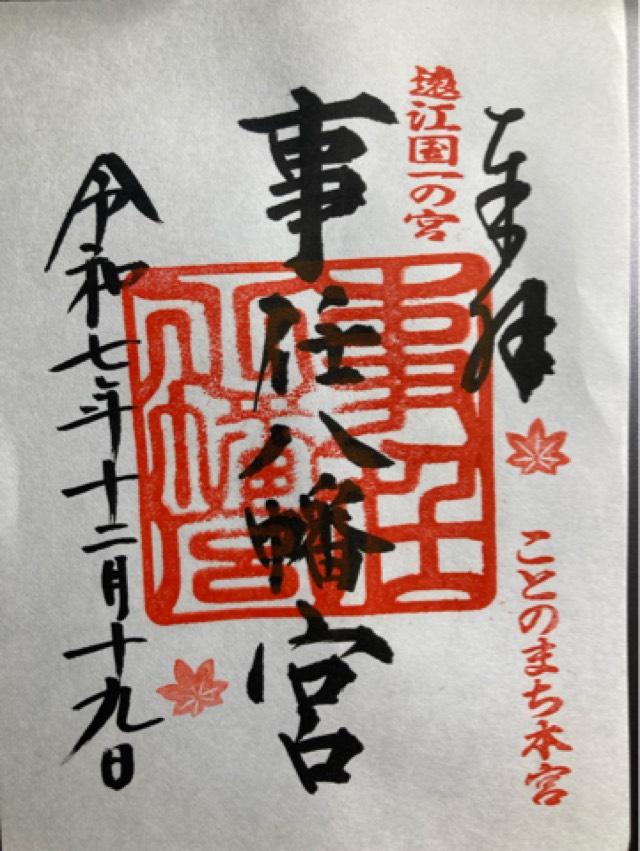 奉拝
ことのまち本宮
遠江国一の宮
事任八幡宮
事任
八幡宮
令和七年十二月十九日